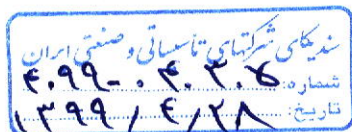 سندیکای شرکتهای تأسیساتی و صنعتی ایران
شماره:
تاریخ: ۱۳۹۹/۴/۲۸